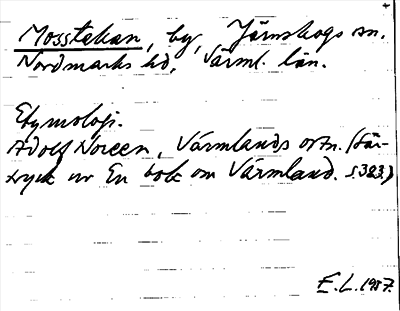 Mosstakan, by, Järnskogs sn.
Nordmarks hd, Värml. län.
Etymologi.
Adolf Noreen, Värmlands ortn. (Sär-
tryck ur En bok om Värmland. s.323.)
E. L. 1917.